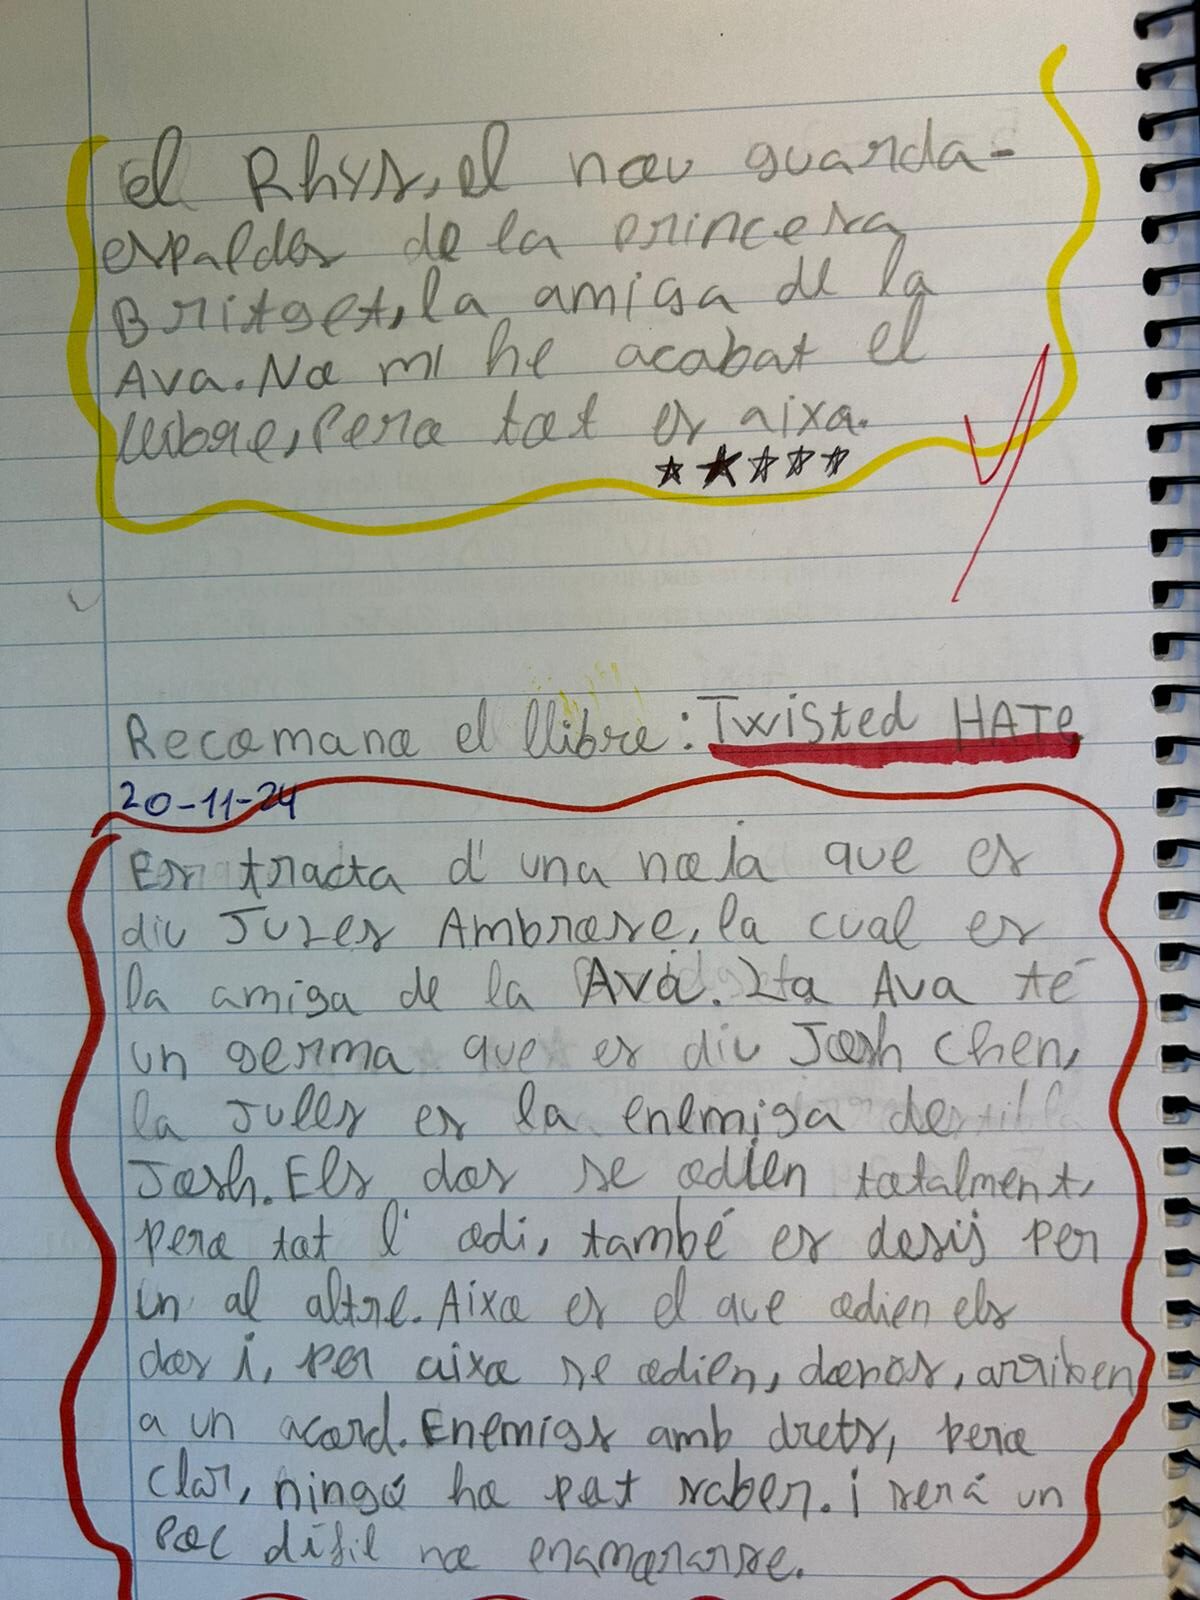 el Rhys, el nou guarda-
espaldes de la princesa
Britget, la amiga de la
Ava. No mi he acabat el
llibre, pero tot es aixo.
Recomano el llibre: Twisted HATe
20-11-24
Es tracta d'una noia que es
diu Jules Ambrose, la cual es
la amiga de la Ava. La Ava té
un germa que es diu Josh Chen,
la Jules es la enemiga de
Josh. Els dos se odien totalment,
pero tot l'odi, també es desij per
un al altre. Aixo es el que odien els
dos i, per aixo se odien, doncs, arriben
a un acord. Enemigs amb drets, pero
clar, ningú ho pot saber. i será un
poc difil no enamorarse.